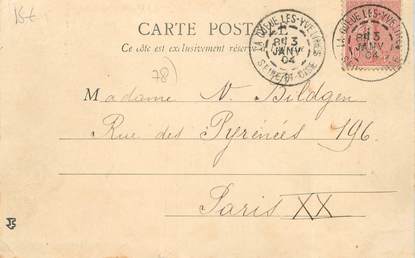 15€
CARTE POSTALE
Ce côté est exclusivement réservé
LA QUEUE LES-YVELINES
3
JANV
04
SEINE-ET-OISE
LA QUEUE LES-YVELINES
3
JANV
04
78)
Madame V. Bildgen
Rue des Pyrénées 196.
Paris XX